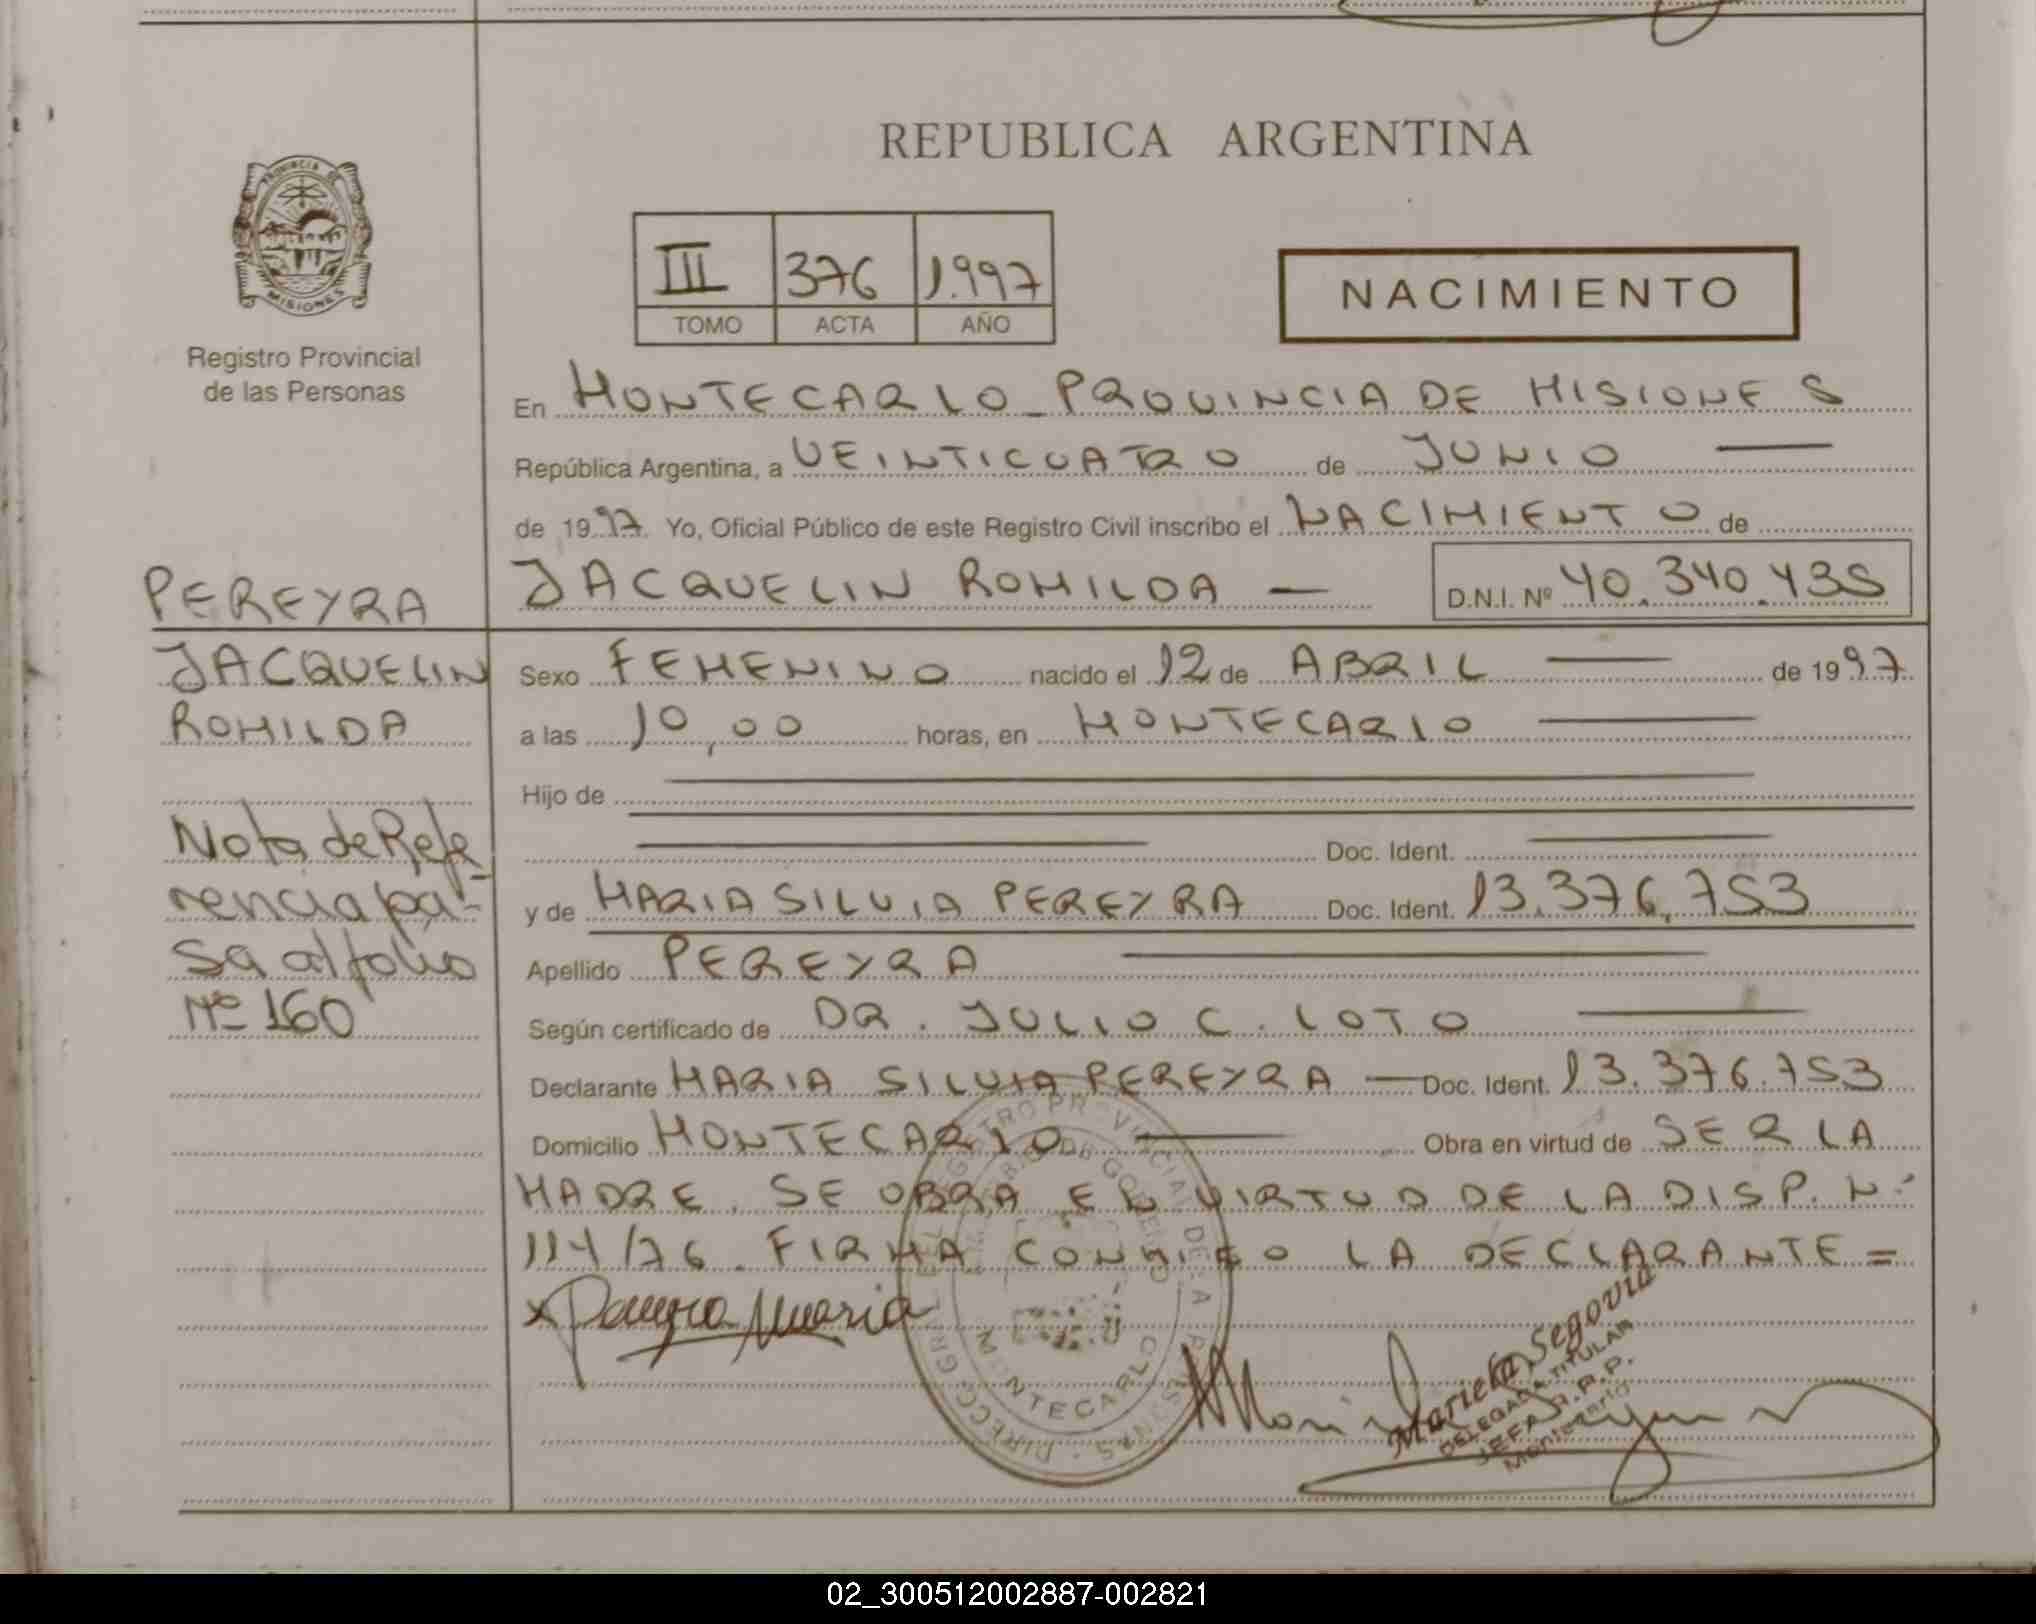 REPUBLICA ARGENTINA
PROVINCIA DE
MISIONES
Registro Provincial
de las Personas
III 376 1.997
TOMO ACTA AÑO
NACIMIENTO
En MONTECARLO - PROVINCIA DE MISIONES
República Argentina, a VEINTICUATRO de JUNIO
de 1997 Yo, Oficial Público de este Registro Civil inscribo el NACIMIENTO de
JACQUELIN ROMILDA — D.N.I. Nº 40.340.435
PEREYRA
JACQUELIN
ROMILDA
Nota de Refe
rencia pa-
sa al folio
Nº 160
Sexo FEMENINO nacido el 12 de ABRIL de 1997
a las 10,00 horas, en MONTECARLO
Hijo de
Doc. Ident.
y de MARIA SILVIA PEREYRA Doc. Ident. 13.376.753
Apellido PEREYRA
Según certificado de DR. JULIO C. LOTO
Declarante MARIA SILVIA PEREYRA — Doc. Ident. 13.376.753
Domicilio MONTECARLO Obra en virtud de SER LA
MADRE. SE OBRA EN VIRTUD DE LA DISP. Nº
114/76. FIRMA CONMIGO LA DECLARANTE =
x Pereyra Maria
MONTECARLO
Mariela Segovia
DELEGADA TITULAR
JEFA R.P.P.
Montecarlo
02_300512002887-002821